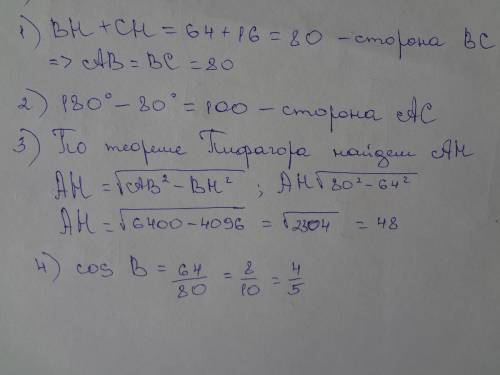 1) BH + CH = 64 + 16 = 80 – сторона BC
=> AB = BC = 80
2) 180° – 80° = 100 – сторона AC
3) По теореме Пифагора найдем AH
AH = √(AB² – BH²) ; AH √(80² – 64²)
AH = √(6400 – 4096) = √2304 = 48
4) cos B = 64/80 = 8/10 = 4/5